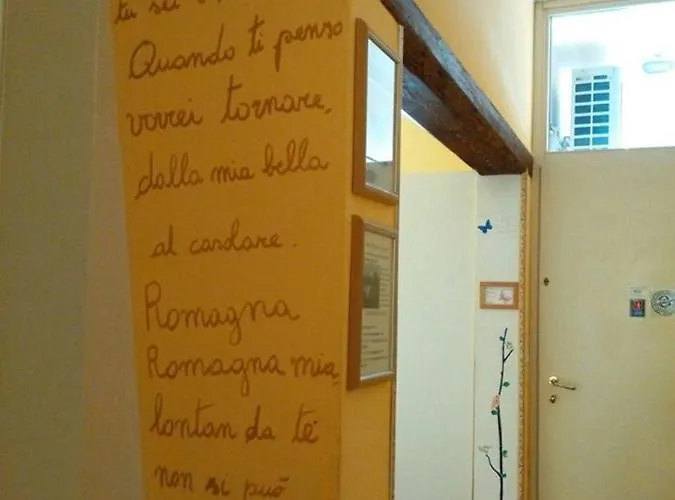 tu sei
Quando ti penso
vorrei tornare,
dalla mia bella
al casolare.
Romagna
Romagna mia,
lontan da te
non si può